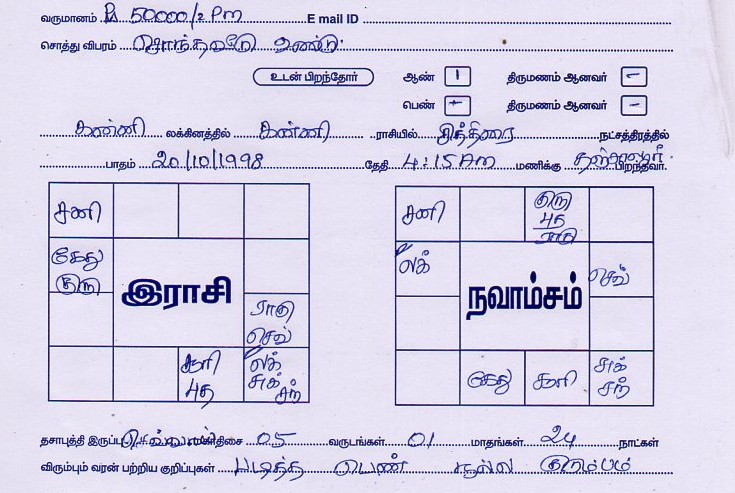 வருமானம் Rs 50000/2 Pm E mail ID
சொத்து விபரம் சொந்தவீடு உண்டு
உடன் பிறந்தோர் ஆண் 1 திருமணம் ஆனவர் –
பெண் – திருமணம் ஆனவர் –
கன்னி லக்கினத்தில் கன்னி ராசியில் சித்திரை நட்சத்திரத்தில்
பாதம் 20/10/1998 தேதி 4:15 Am மணிக்கு பிறந்தவர்.
சனி
கேது
குரு
இராசி
ராகு
செவ்
சூரி
புத
லக்
சுக்
சந்
சனி
குரு
புத
ராகு
லக்
நவாம்சம்
செவ்
கேது
சூரி
சுக்
சந்
தசாபுத்தி இருப்பு செவ்வாய் திசை 05 வருடங்கள் 01 மாதங்கள் 24 நாட்கள்
விரும்பும் வரன் பற்றிய குறிப்புகள் படித்த பெண் நல்ல குடும்பம்